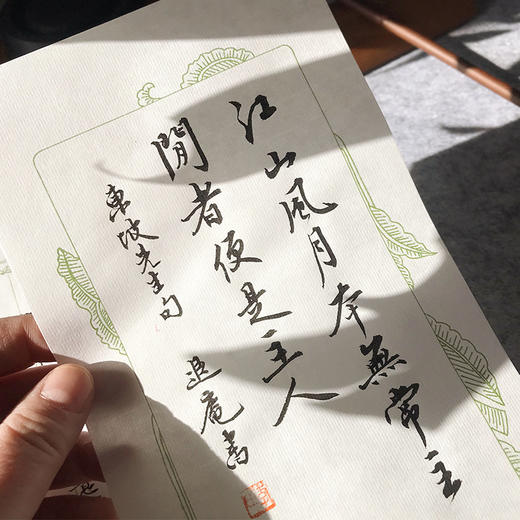 江山風月本無常主
閒者便是主人
東坡先生句
退庵書